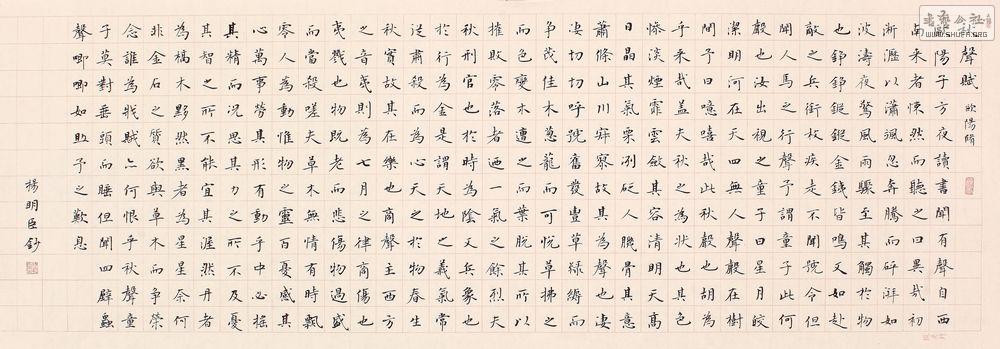 秋聲賦 歐陽脩
歐陽子方夜讀書聞有聲自西
南來者悚然而聽之曰異哉初
淅瀝以瀟颯忽奔騰而澎湃如
波濤夜驚風雨驟至其觸於物
也錚錚鏦鏦金鐵皆鳴又如赴
敵之兵銜枚疾走不聞號令但
聞人馬之行聲予謂童子此何
聲也汝出視之童子曰星月皎
潔明河在天四無人聲聲在樹
間予曰噫嘻哉此秋聲也胡為
乎來哉蓋夫秋之為狀也其色
慘淡煙霏雲斂其容清明天高
日晶其氣栗冽砭人肌骨其意
蕭條山川寂寥故其為聲也淒
淒切切呼號奮發豐草綠縟而
爭茂佳木蔥籠而可悅草拂之
而色變木遭之而葉脫其所以
摧敗零落者迺一氣之餘烈夫
秋刑官也於時為陰又兵象也
於行為金是謂天地之義氣常
以肅殺而為心天之於物春生
秋實故其在樂也商聲主西方
之音夷則為七月之律商傷也
夷戮也物既老而悲傷物過盛
而當殺嗟夫草木無情有時飄
零人為動惟物之靈百憂感其
心萬事勞其形有動乎中必搖
其精而況思其力之所不及憂
其智之所不能宜其渥然丹者
為槁木黟然黑者為星星奈何
非金石之質欲與草木而爭榮
念誰為戕賊亦何恨乎秋聲童
子莫對垂頭而睡但聞四壁蟲
聲唧唧如助予之歎息
楊明臣鈔
WWW.SHUFA.ORG